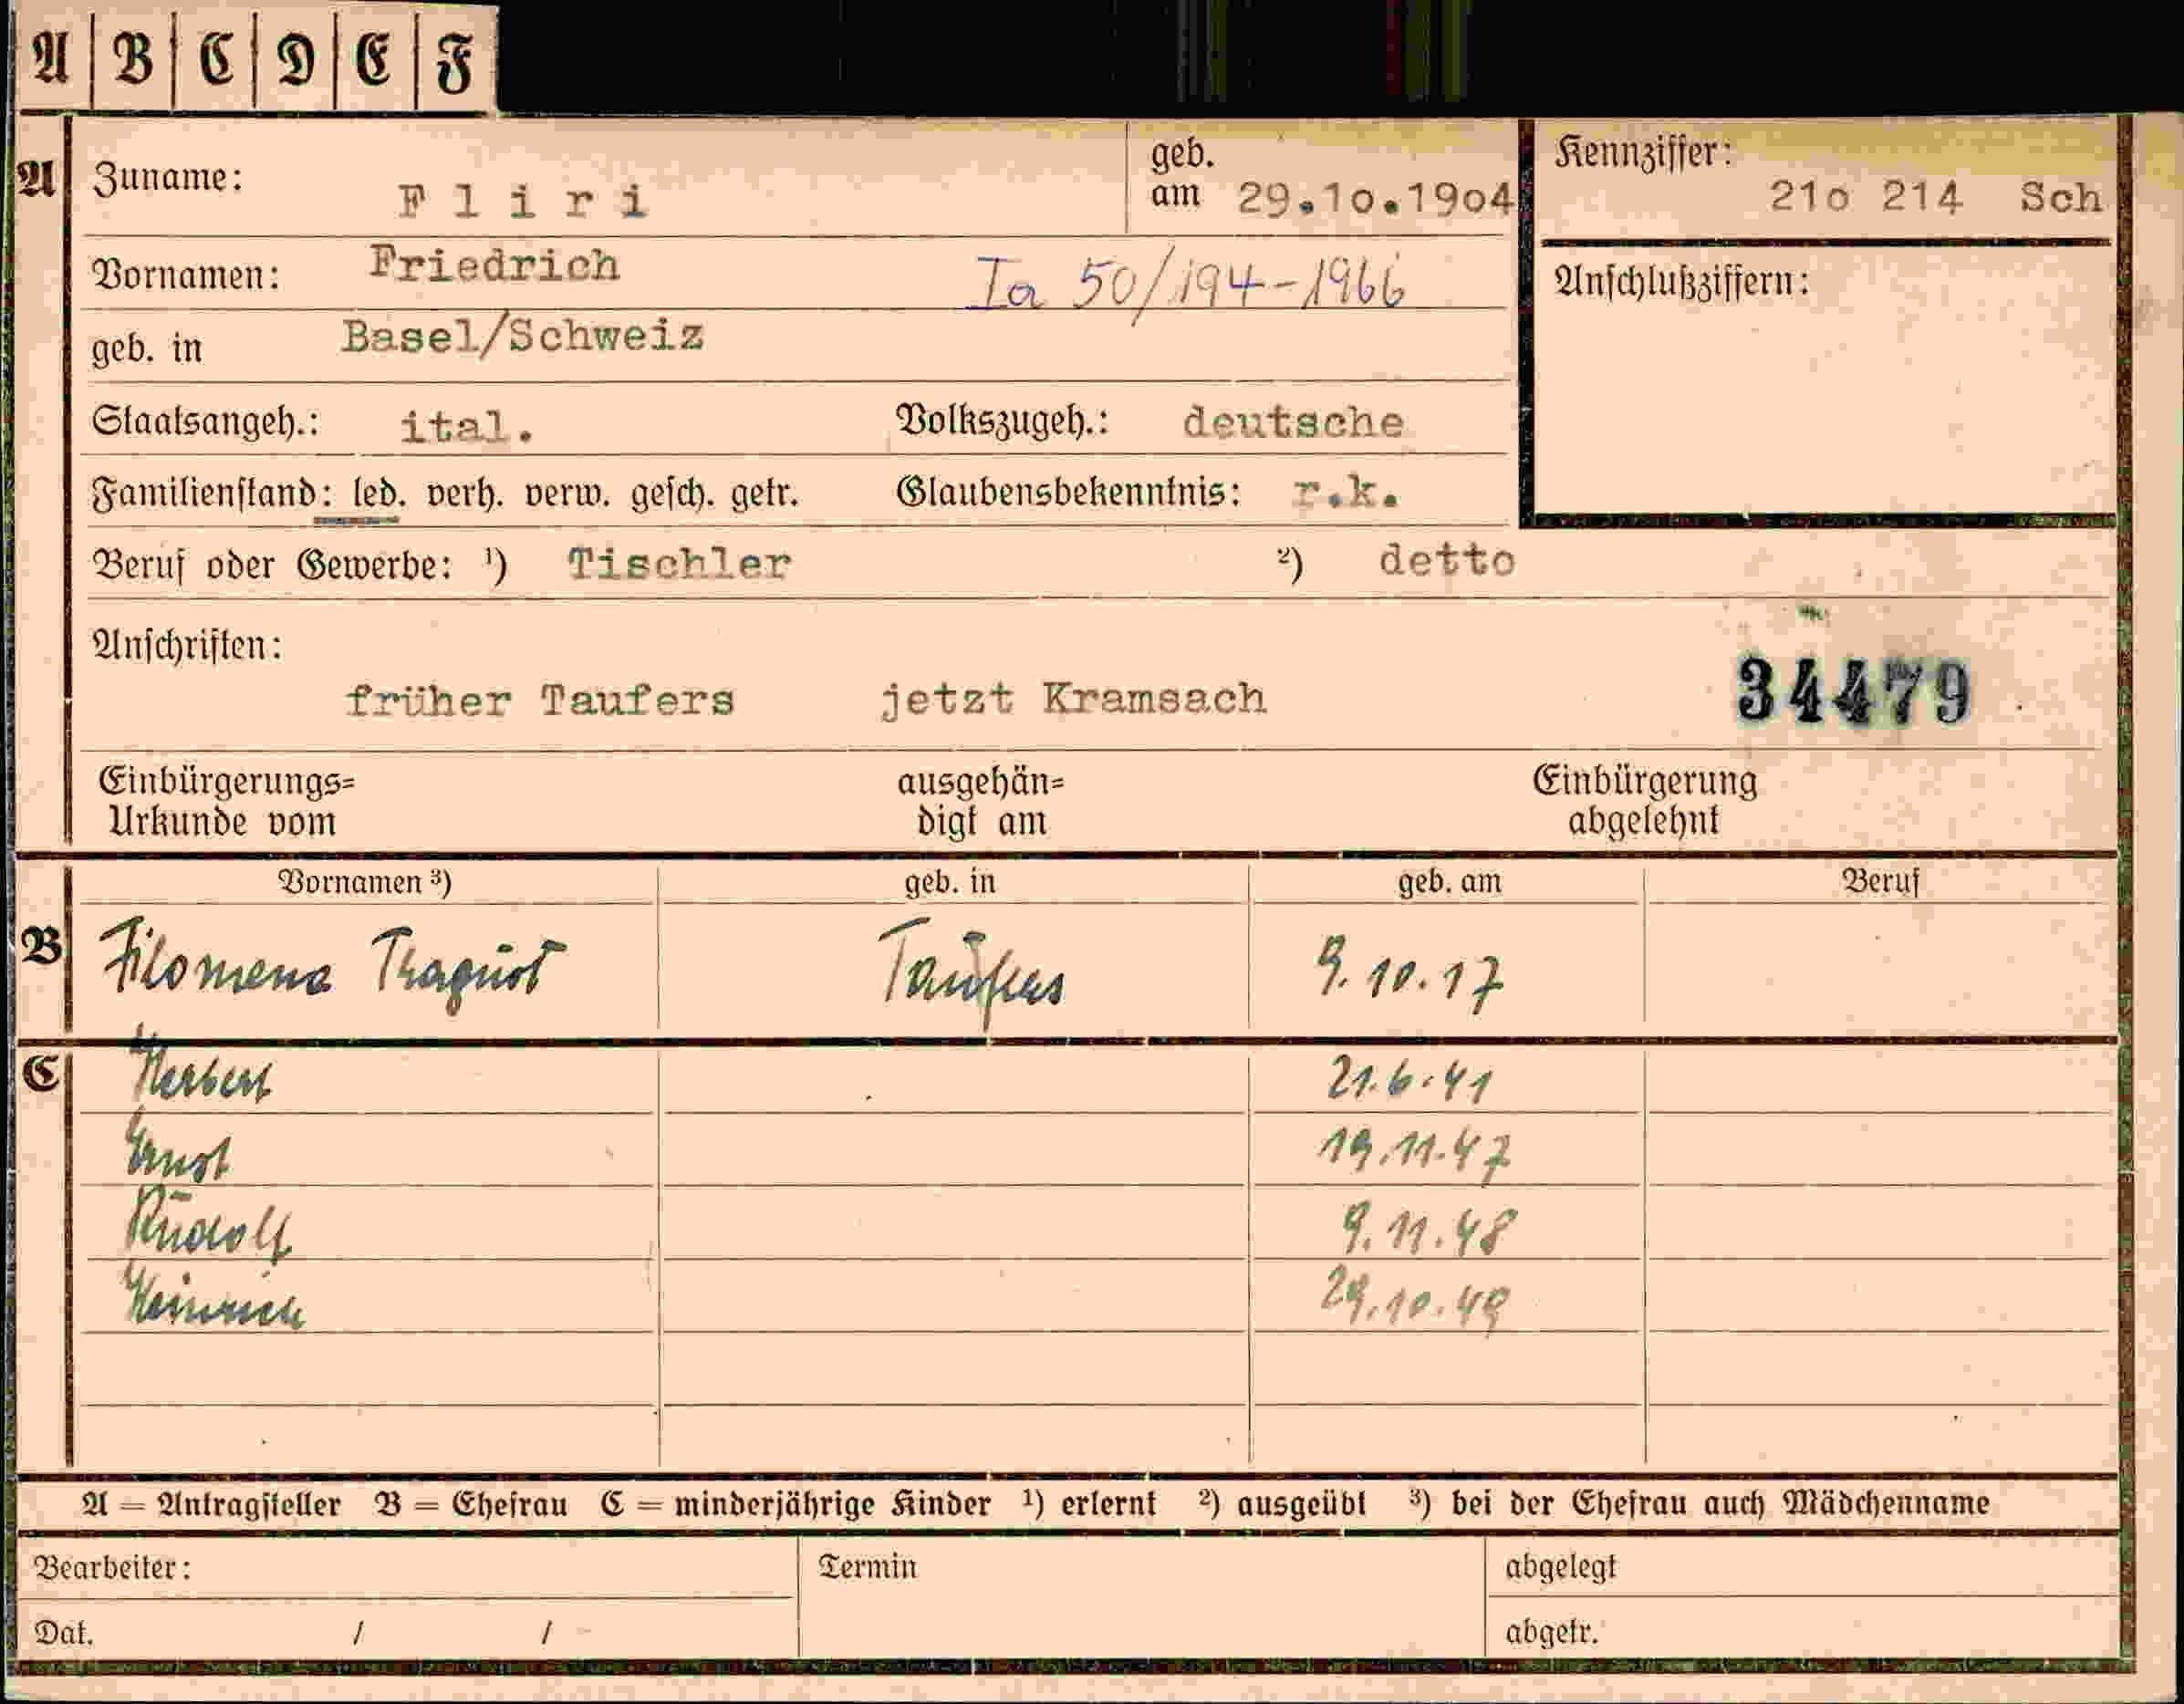 A B C D E F
A Zuname: Fliri geb. am 29.10.1904 Kennziffer: 210 214 Sch
Vornamen: Friedrich Ia 50/194-1966 Anschlußziffern:
geb. in Basel/Schweiz
Staatsangeh.: ital. Volkszugeh.: deutsche
Familienstand: led. verh. verw. gesch. getr. Glaubensbekenntnis: r.k.
Beruf oder Gewerbe: ¹) Tischler ²) detto
Anschriften:
früher Taufers jetzt Kramsach 34479
Einbürgerungs= Urkunde vom ausgehän= digt am Einbürgerung abgelehnt
Vornamen ³) geb. in geb. am Beruf
B Filomena Taufers 9.10.17
C Herbert 21.6.41
Ernst 19.11.47
Rudolf 9.11.48
Heinrich 29.10.49
A = Antragsteller B = Ehefrau C = minderjährige Kinder ¹) erlernt ²) ausgeübt ³) bei der Ehefrau auch Mädchenname
Bearbeiter: Termin abgelegt
Dat. / / abgetr.